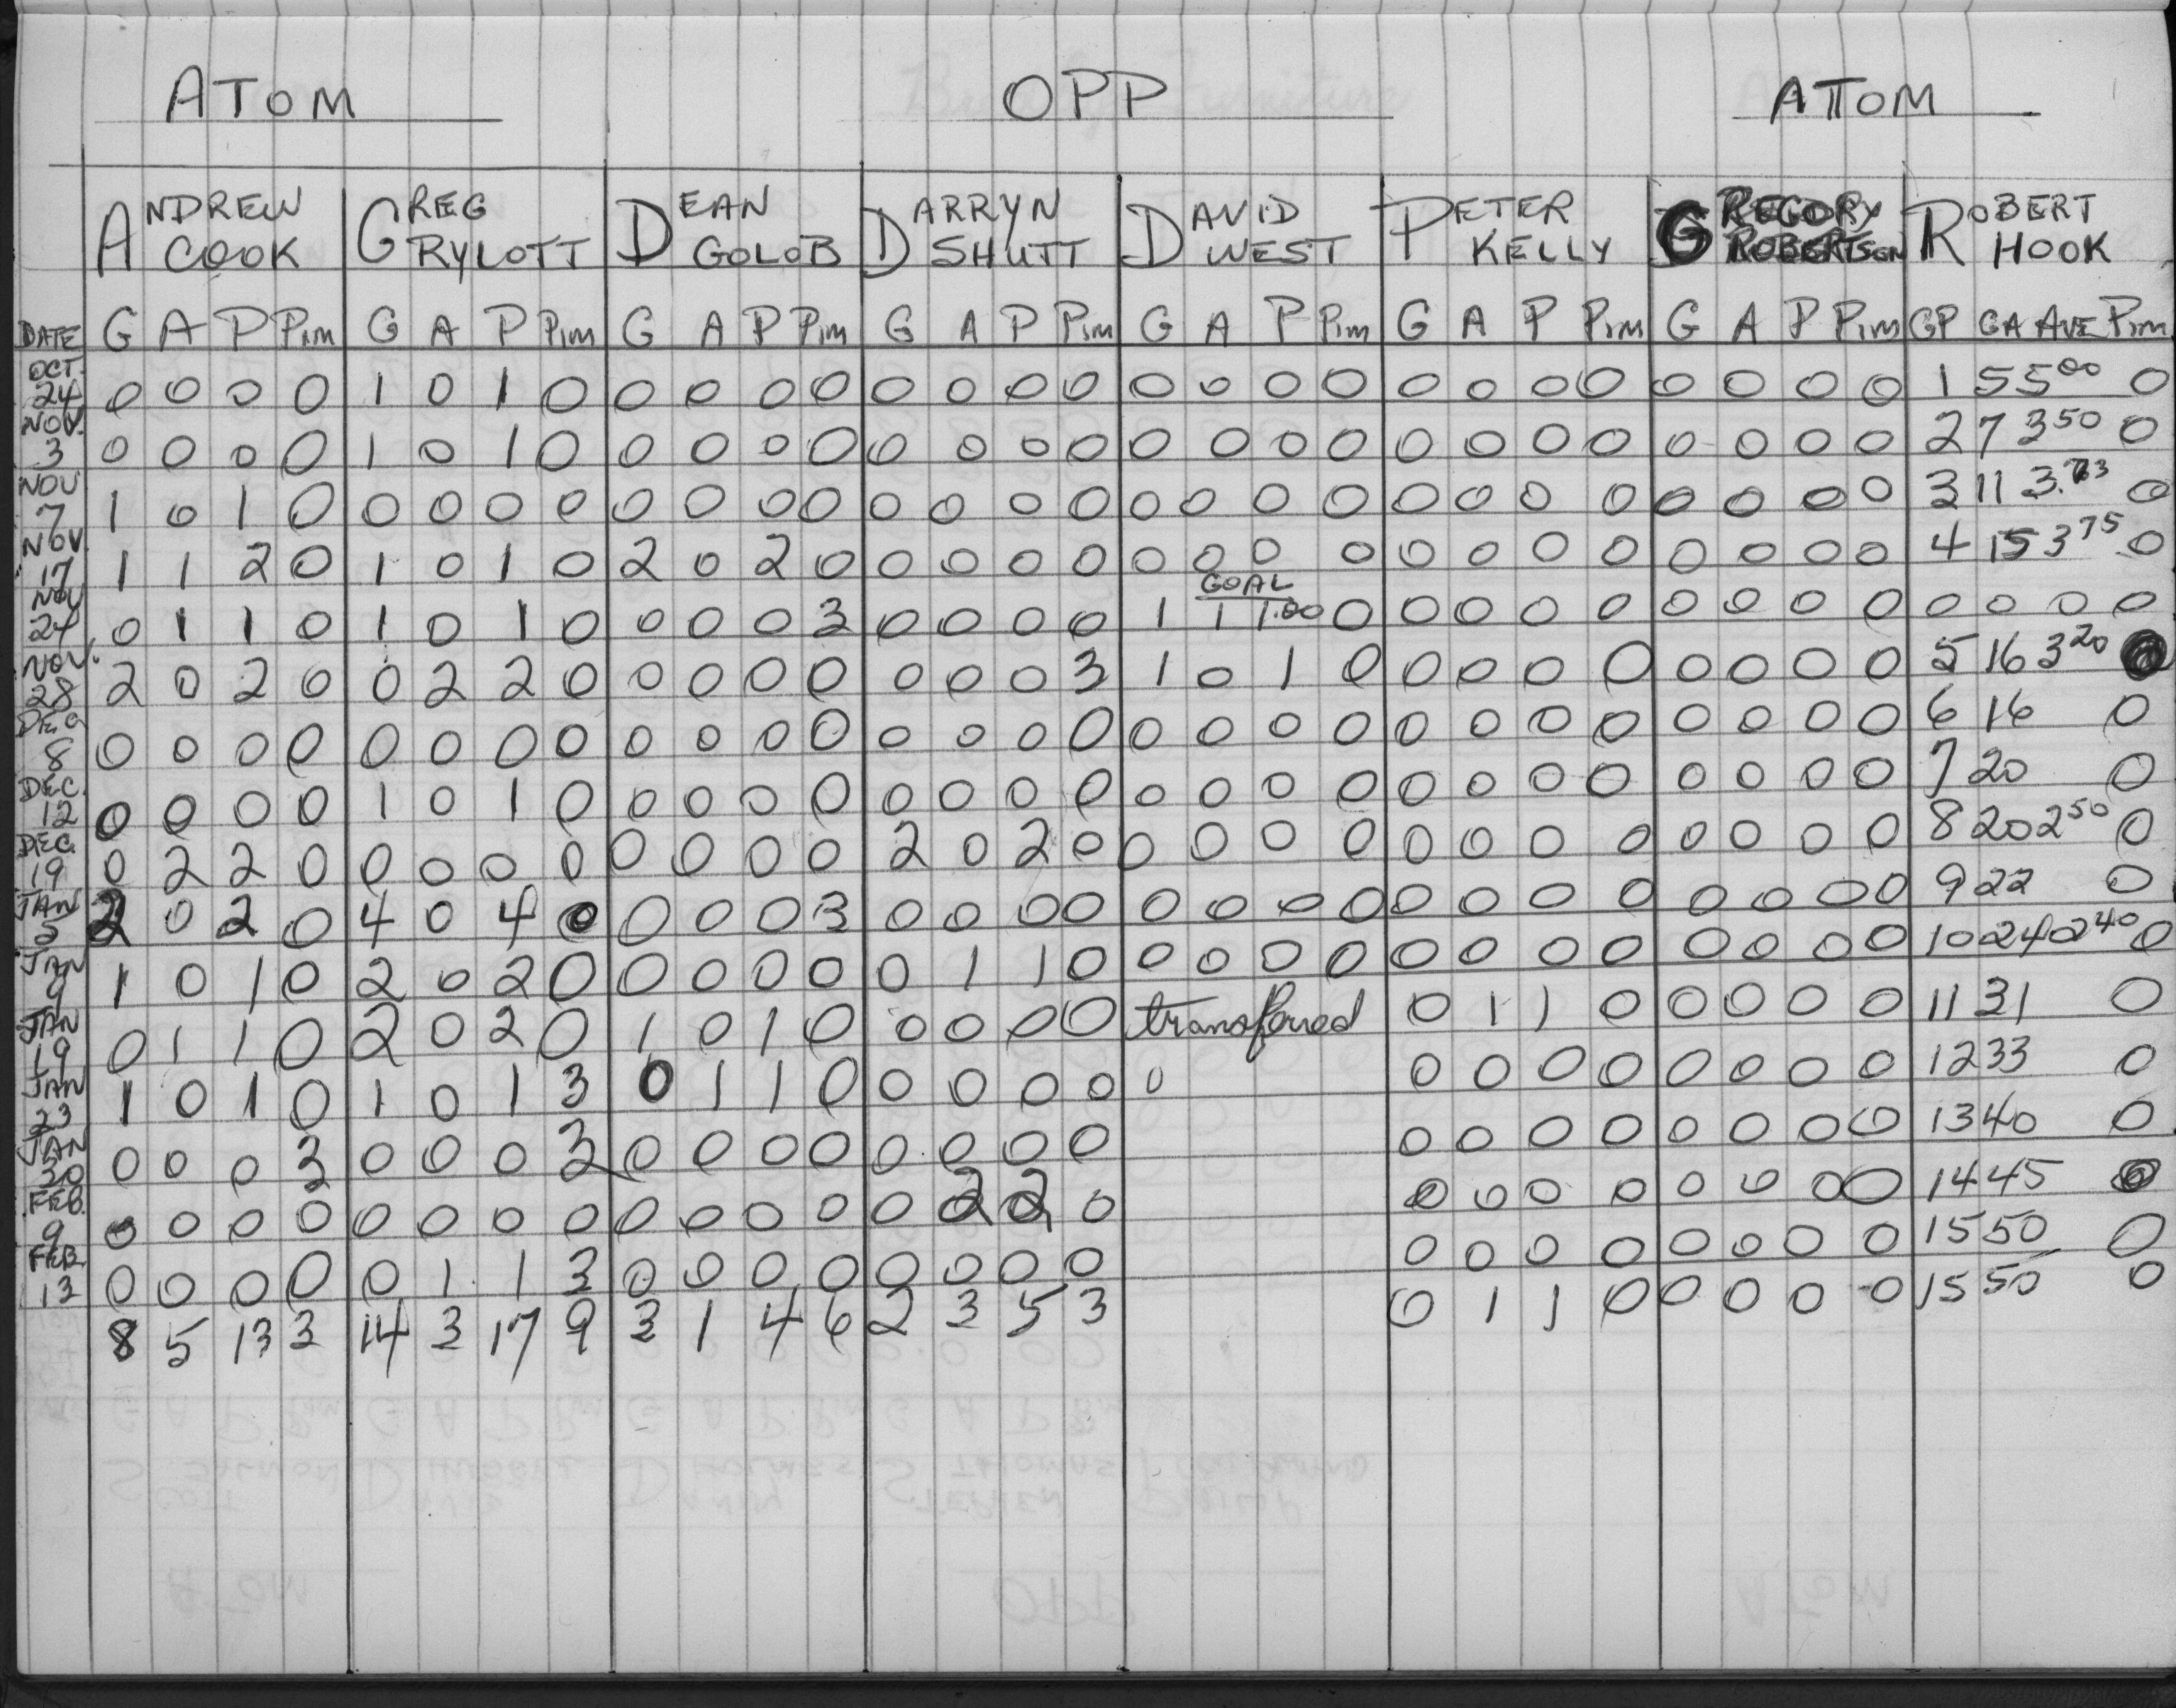 ATOM OPP ATOM
ANDREW COOK GREG RYLOTT DEAN GOLOB DARRYN SHUTT DAVID WEST PETER KELLY GREGORY ROBERTSON ROBERT HOOK
DATE G A P Pim G A P Pim G A P Pim G A P Pim G A P Pim G A P Pim G A P Pim GP GA AVE Pim
OCT. 24 0 0 0 0 1 0 1 0 0 0 0 0 0 0 0 0 0 0 0 0 0 0 0 0 0 0 0 0 1 5 5 00 0
NOV. 3 0 0 0 0 1 0 1 0 0 0 0 0 0 0 0 0 0 0 0 0 0 0 0 0 0 0 0 0 2 7 3 50 0
NOV 7 1 0 1 0 0 0 0 0 0 0 0 0 0 0 0 0 0 0 0 0 0 0 0 0 0 0 0 0 3 11 3. 0
NOV. 17 1 1 2 0 1 0 1 0 2 0 2 0 0 0 0 0 0 0 0 0 0 0 0 0 0 0 0 0 4 15 3 75 0
GOAL
NOV 24 0 1 1 0 1 0 1 0 0 0 0 3 0 0 0 0 1 1 1.00 0 0 0 0 0 0 0 0 0 0 0 0 0
NOV. 28 2 0 2 0 0 2 2 0 0 0 0 0 0 0 0 3 1 0 1 0 0 0 0 0 0 0 0 0 5 16 3 20
DEC 8 0 0 0 0 0 0 0 0 0 0 0 0 0 0 0 0 0 0 0 0 0 0 0 0 0 0 0 0 6 16 0
DEC. 12 0 0 0 0 1 0 1 0 0 0 0 0 0 0 0 0 0 0 0 0 0 0 0 0 0 0 0 0 7 20 0
DEC. 19 0 2 2 0 0 0 0 0 0 0 0 0 2 0 2 0 0 0 0 0 0 0 0 0 0 0 0 0 8 20 2 50 0
JAN 2 2 0 2 0 4 0 4 0 0 0 0 3 0 0 0 0 0 0 0 0 0 0 0 0 0 0 0 0 9 22 0
JAN 9 1 0 1 0 2 0 2 0 0 0 0 0 0 1 1 0 0 0 0 0 0 0 0 0 0 0 0 0 10 24 2 40 0
JAN 19 0 1 1 0 2 0 2 0 1 0 1 0 0 0 0 0 transferred 0 1 1 0 0 0 0 0 11 31 0
JAN 23 1 0 1 0 1 0 1 3 0 1 1 0 0 0 0 0 0 0 0 0 0 0 0 0 0 12 33 0
JAN 30 0 0 0 3 0 0 0 3 0 0 0 0 0 0 0 0 0 0 0 0 0 0 0 0 13 40 0
FEB. 9 0 0 0 0 0 0 0 0 0 0 0 0 0 2 2 0 0 0 0 0 0 0 0 0 14 45 0
FEB. 13 0 0 0 0 0 1 1 3 0 0 0 0 0 0 0 0 0 0 0 0 0 0 0 0 15 50 0
8 5 13 3 14 3 17 9 3 1 4 6 2 3 5 3 0 1 1 0 0 0 0 0 15 50 0